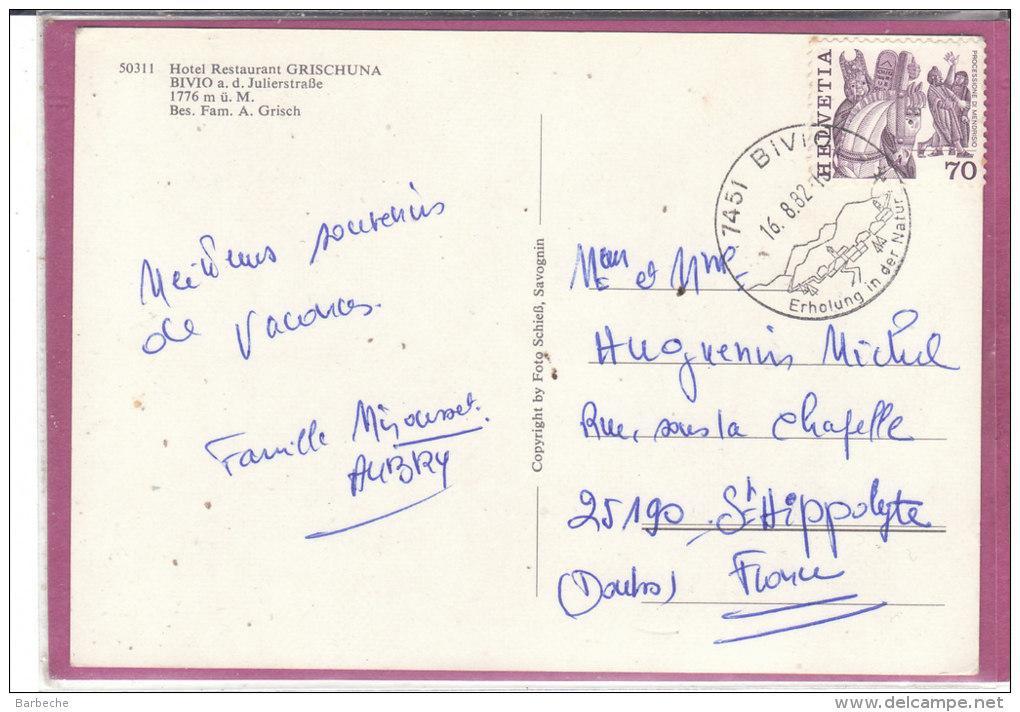 50311 Hotel Restaurant GRISCHUNA
BIVIO a. d. Julierstraße
1776 m ü. M.
Bes. Fam. A. Grisch
HELVETIA
PROCESSIONE DI MENDRISIO
70
7451 BIVIO
16. 8.82-1
Erholung in der Natur
Meilleurs souvenirs
de vacances.
Famille
AUBRY
Copyright by Foto Schieß, Savognin
et Mme
Huguenin Michel
Rue, sous la chapelle
25190 St Hippolyte
(Doubs) France
Barbeche
www.delcampe.net